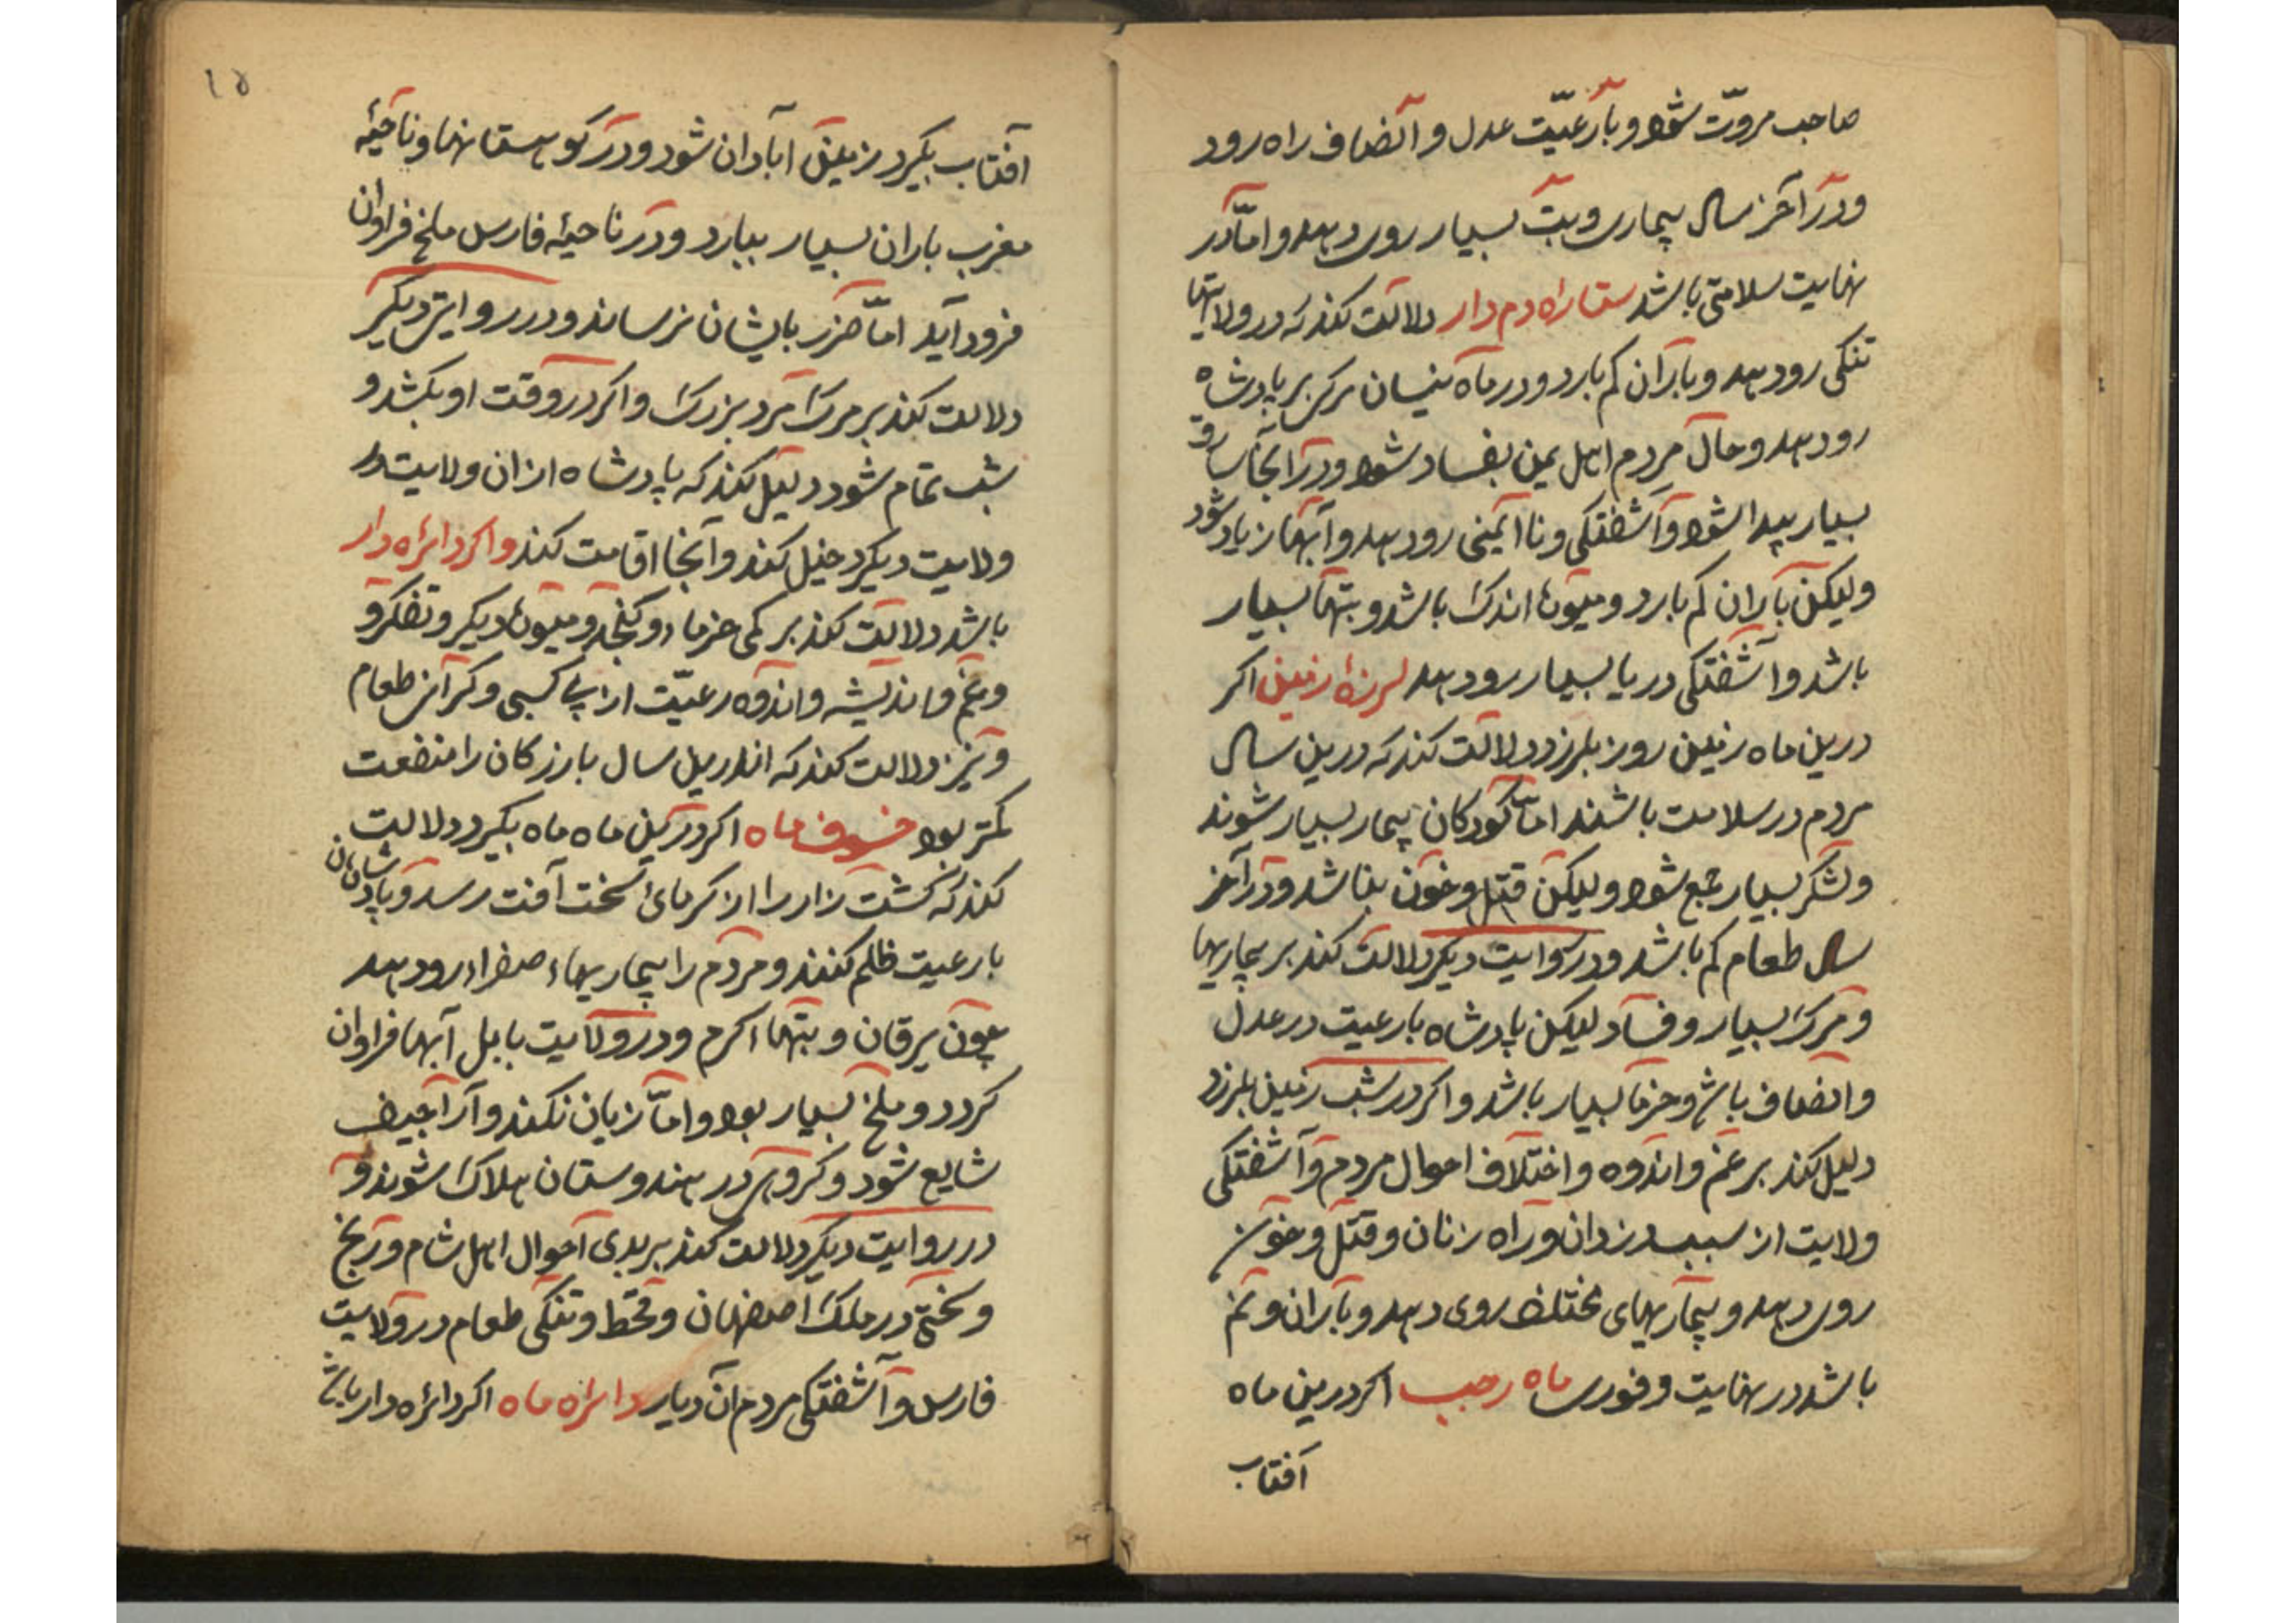 صاحب مروّت شود و با رعیّت عدل و انصاف راه رود
و در آخر سال بیماری و تب بسیار روی دهد و امّا در
نهایت سلامتی باشد ستاره دم دار دلالت کند که در ولایتها
تنکی رو دهد و باران کم بارد و در ماه نیسان مرکی بر پادشاه
رو دهد و حال مردم اهل یمن بفساد شود و در آنجا سارق
بسیار پیدا شود و آشفتکی و نا ایمنی رو دهد و آبها زیاد شود
و لیکن باران کم بارد و میوها اندک باشد و تبها بسیار
باشد و آشفتکی دریا بسیار رو دهد لرزهٔ زمین اکر
درین ماه زمین روز بلرزد دلالت کند که درین سال
مردم در سلامت باشند امّا کودکان بیمار بسیار شوند
و لشکر بسیار جمع شود و لیکن قتل و خون بناشد و در آخر
سال طعام کم باشد و در روایت دیکر دلالت کند بر بیماریها
و مرک بسیار و فساد لیکن پادشاه با رعیت در عدل
و انصاف باشد و خرما بسیار باشد و اکر در شب زمین بلرزد
دلیل کند بر غم و اندوه و اختلاف احوال مردم و آشفتکی
ولایت از سبب دزدان و راه زنان و قتل و خون
روی دهد و بیماریهای مختلف روی دهد و باران و نم
باشد در نهایت و فور ماه رجب اکر درین ماه
آفتاب
۱۵
آفتاب بکیرد زمین آبادان شود و در کوهستانها و ناحیهٔ
مغرب باران بسیار ببارد و در ناحیهٔ فارس ملخ فراوان
فرود آید امّا ضرر بایشان نرساند و در روایتی دیکر
دلالت کند بر مرک مرد بزرک و اکر در وقت او بکشد و
شب تمام شود دلیل کند که پادشاه از ان ولایت در
ولایت دیکر دخیل کند و آنجا اقامت کند و اکر دائره دار
باشد دلالت کند بر کمی خرما و کنجد و میوهٔ دیکر و تفکر و
و غم و اندیشه و اندوه رعیّت از بی کسبی و کرانی طعام
و نیز دلالت کند که اندرین سال بازرکان را منفعت
کمتر بود خسوف ماه اکر درین ماه ماه بکیرد دلالت
کند که کشت زار را از کرمای سخت آفت رسد و پادشاهان
با رعیت ظلم کنند و مردم را بیماریهاء صفراء رو دهد
چون یرقان و تبها اکرم و در ولایت بابل آبها فراوان
کردد و ملخ بسیار بود و امّا زیان نکند و اراجیف
شایع شود و کروهی در هندوستان هلاک شوند و
در روایت دیکر دلالت کند بر بدی احوال اهل شام و رنج
و سختی در ملک اصفهان و قحط و تنکی طعام در ولایت
فارس و آشفتکی مردم آن دیار دائره ماه اکر دائره دار باشد